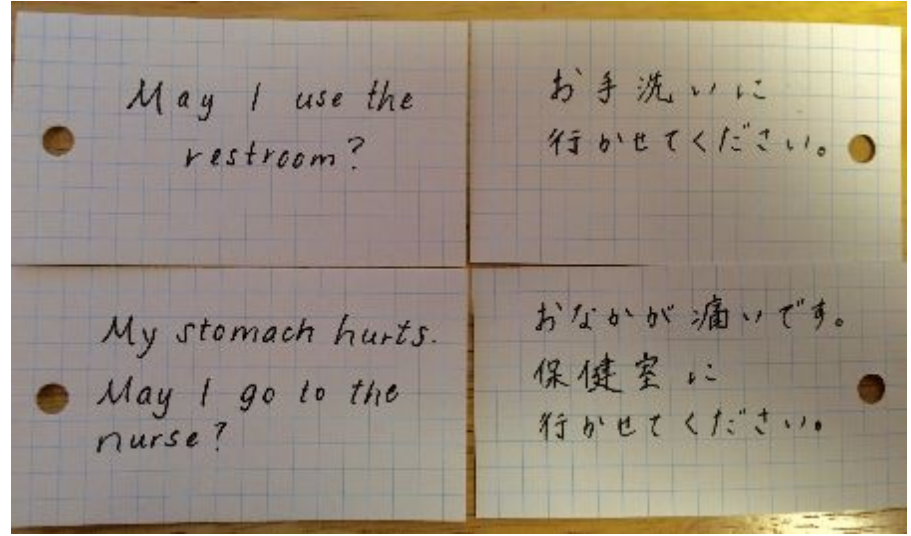 May I use the
restroom?
お手洗いに
行かせてください。
My stomach hurts.
May I go to the
nurse?
おなかが痛いです。
保健室に
行かせてください。